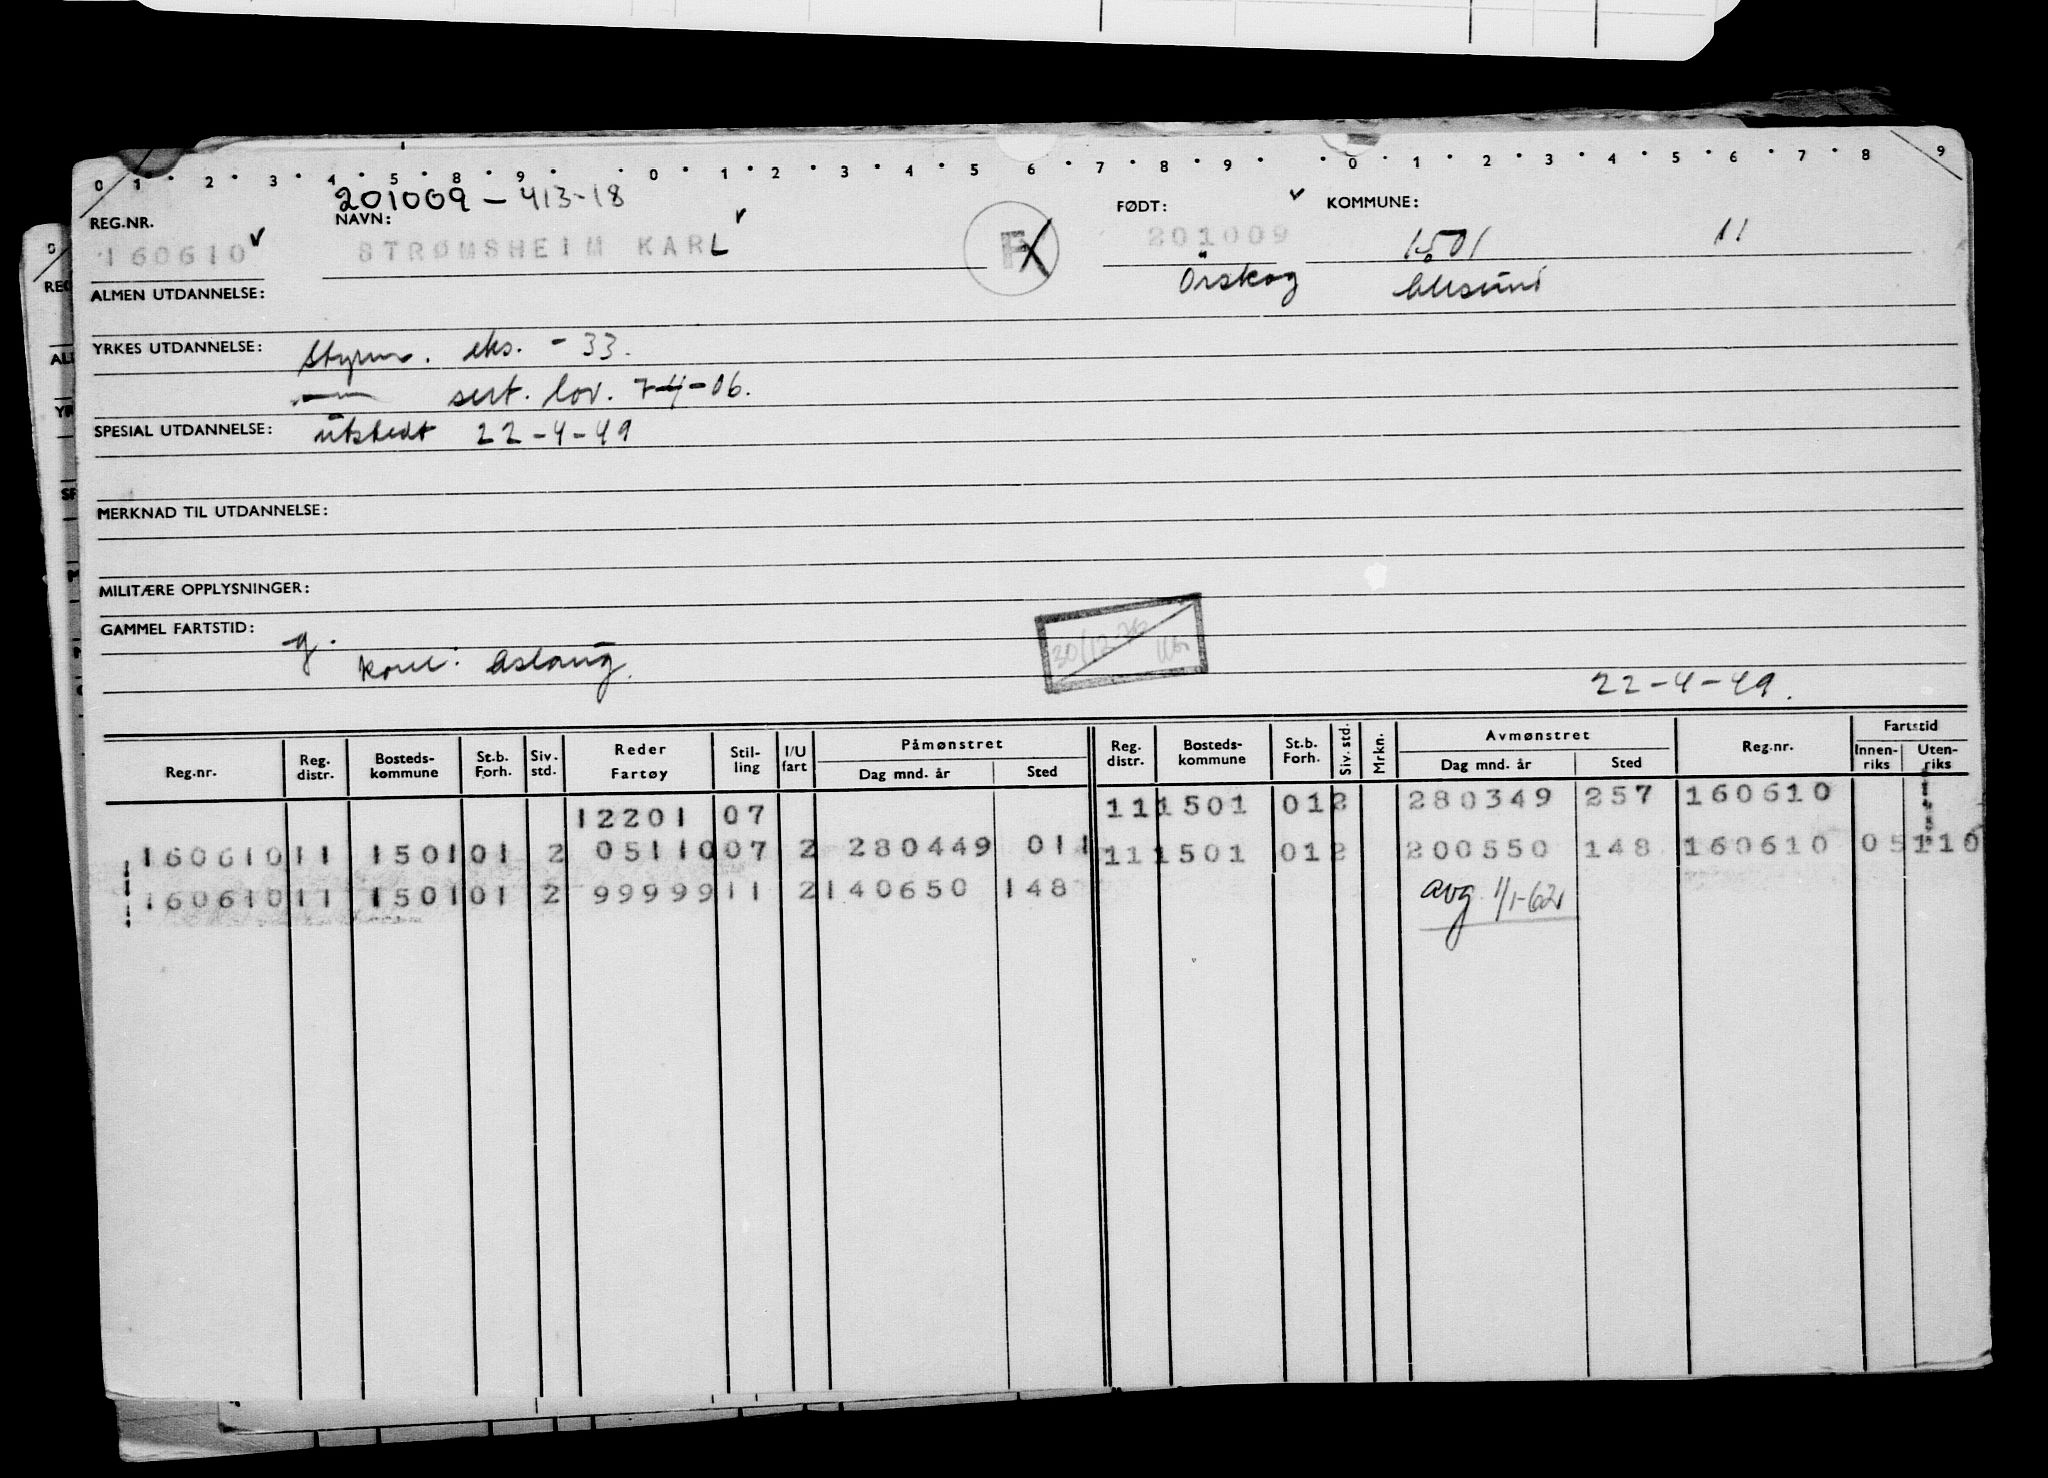 0 1 2 3 4 5 8 9 0 1 2 3 4 5 6 7 8 9 0 1 2 3 4 5 6 7 8 9
201009 - 413-18
REG.NR. NAVN: FØDT: KOMMUNE:
160610 STRØMSHEIM KARL F 201009 1501 11
Örskog Ålesund
ALMEN UTDANNELSE:
YRKES UTDANNELSE: Styrm. eks. - 33.
sert. lov. 7-4-06.
SPESIAL UTDANNELSE: utstedt 22-4-49
MERKNAD TIL UTDANNELSE:
MILITÆRE OPPLYSNINGER:
GAMMEL FARTSTID:
g. kone: Aslaug.
30/12
22-4-49.
Reg.nr. Reg. distr. Bosteds-kommune St.b. Forh. Siv. std. Reder Fartøy Stil-ling I/U fart Påmønstret Dag mnd. år Sted Reg. distr. Bosteds-kommune St.b. Forh. Siv. std. Mrkn. Avmønstret Dag mnd. år Sted Reg.nr. Fartstid Innen-riks Uten-riks
12201 07 11 1501 01 2 280349 257 160610
160610 11 1501 01 2 05110 07 2 280449 011 11 1501 01 2 200550 148 160610 05 110
160610 11 1501 01 2 99999 11 2 140650 148 avg 1/1-62